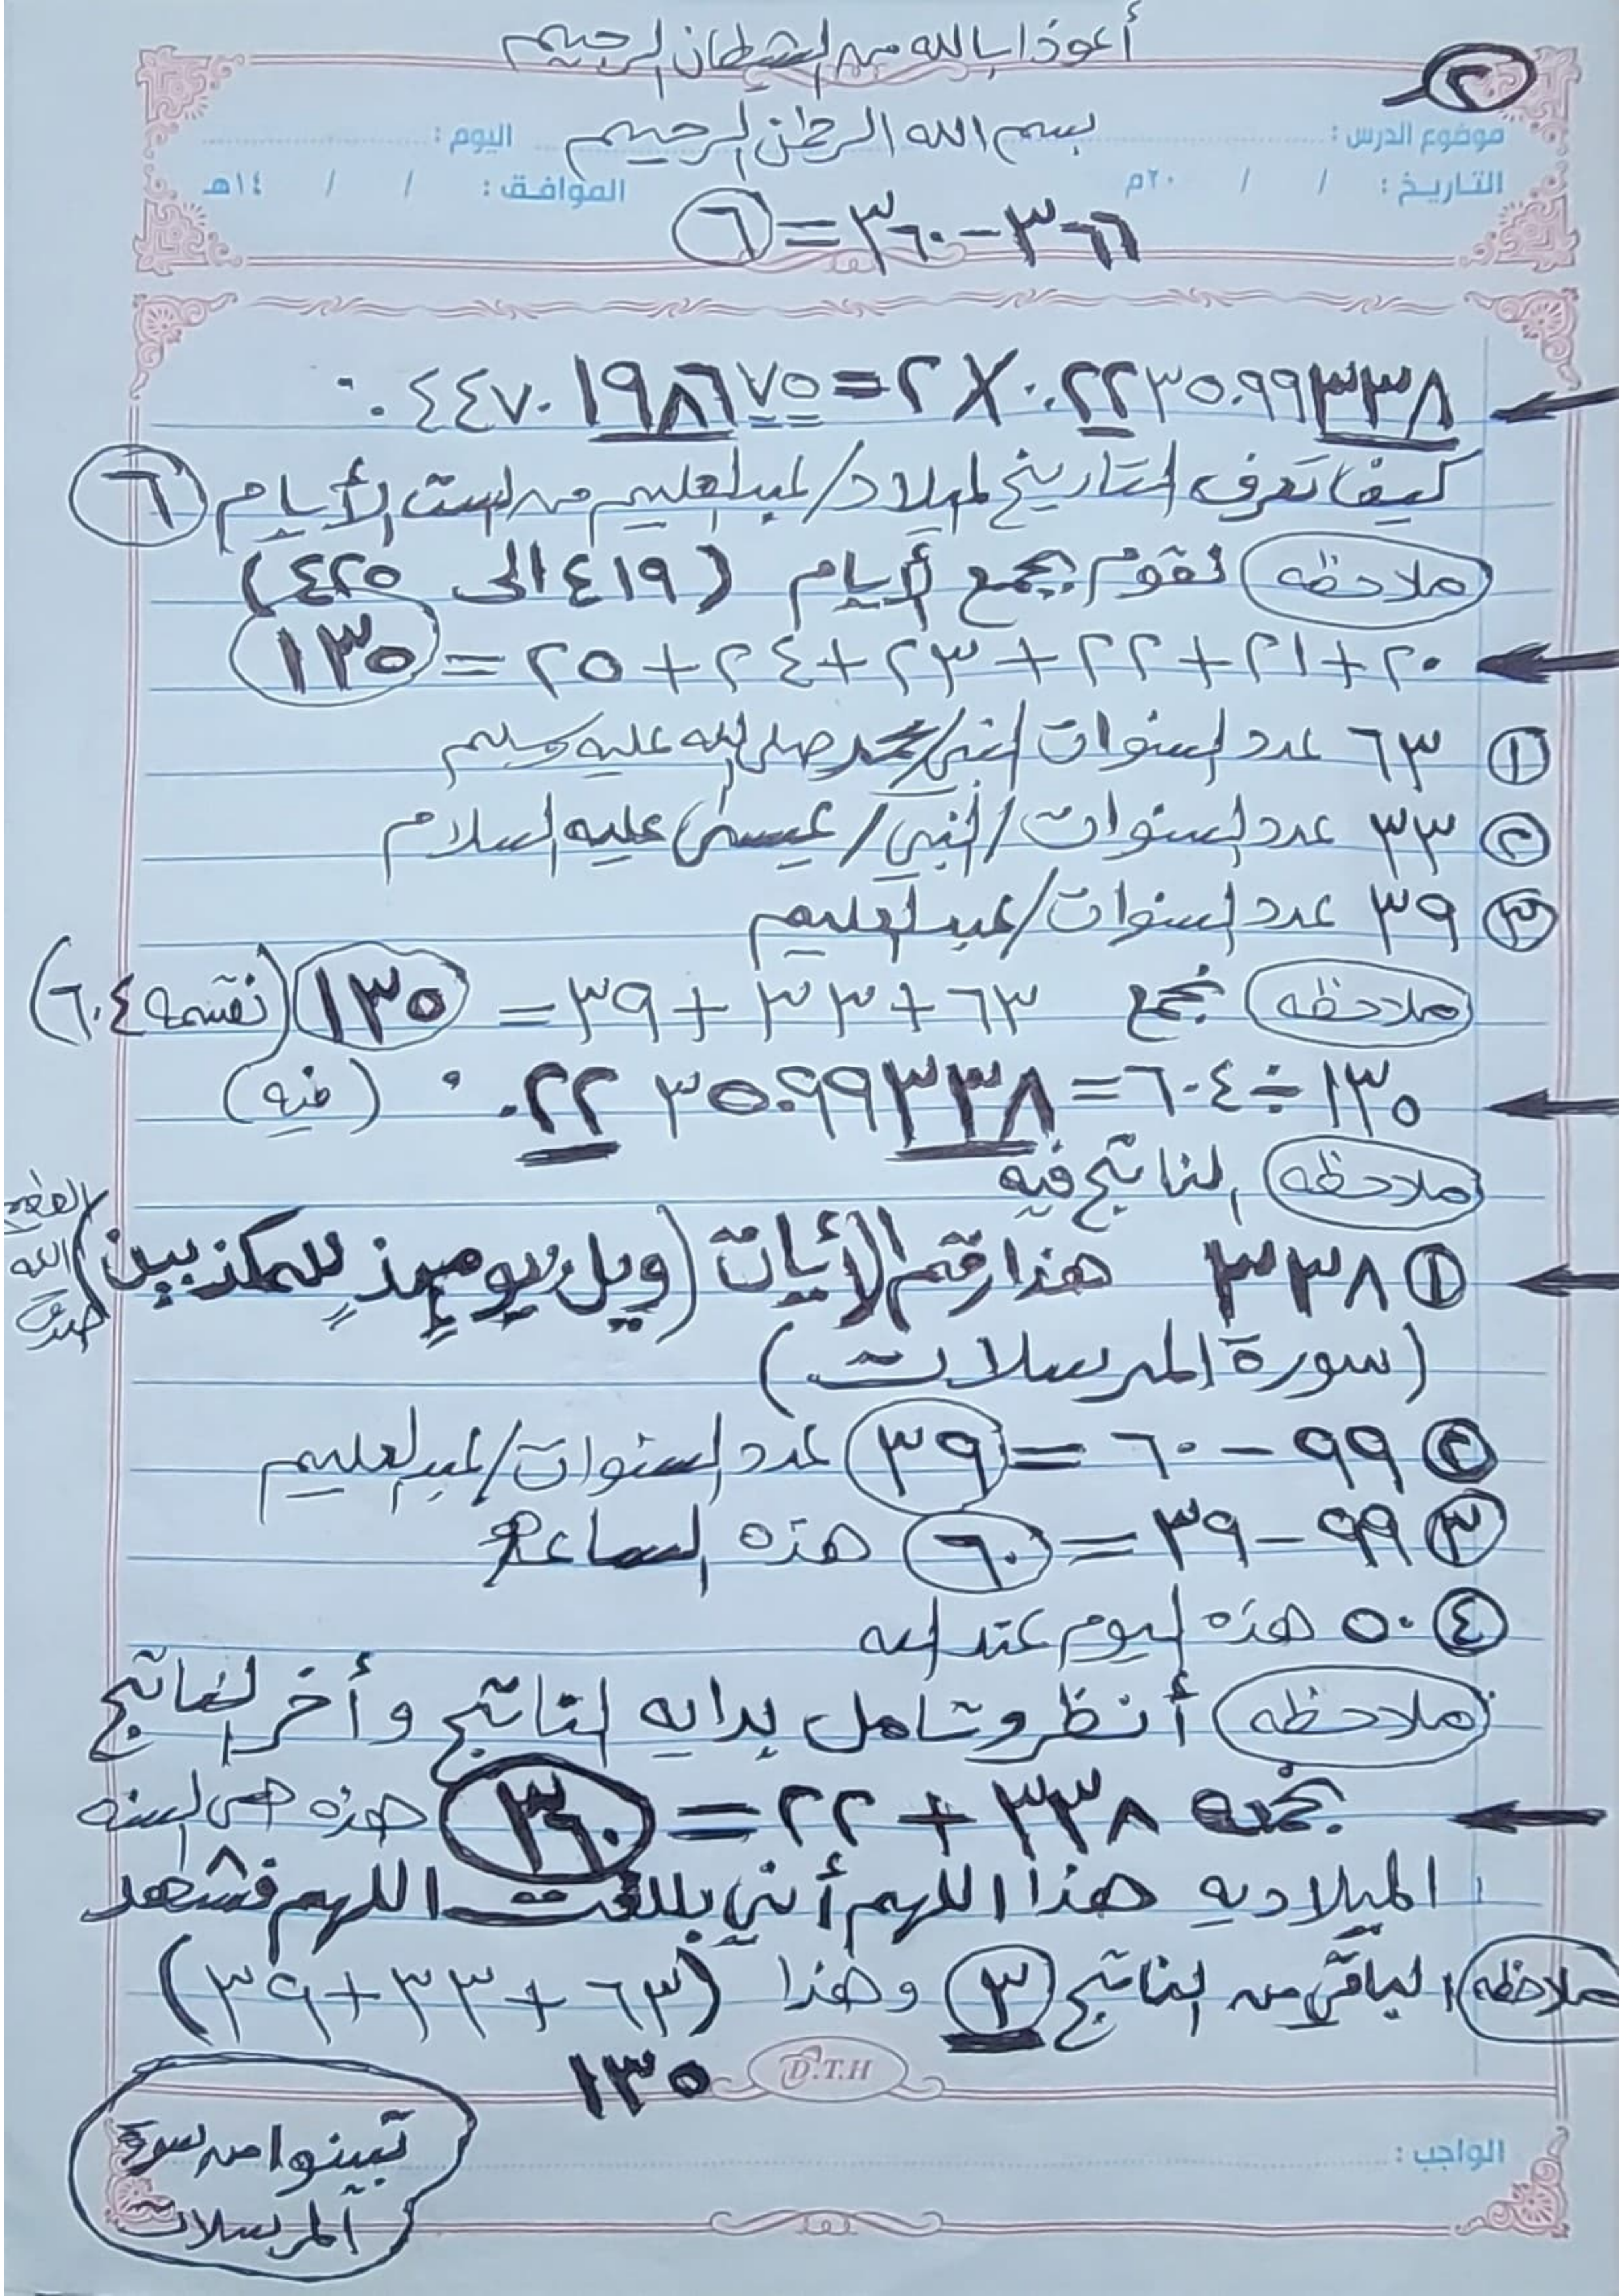 أعوذ بالله من الشيطان الرجيم
٢
بسم الله الرحمن الرحيم
موضوع الدرس : اليوم :
التاريخ : / / ٢٠م الموافق : / / ١٤هـ
٣٦٦-٣٦٠=٦
٠.٢٢٣٥٠٩٩٣٣٨ X ٢=٠.٤٤٧٠١٩٨٦٧٥
كيف تعرف التاريخ لميلاد/عبدالعليم من الست الأيام ٦
ملاحظه نقوم بجمع الأيام (٤١٩ الى ٤٢٥)
٢٠+٢١+٢٢+٢٣+٢٤+٢٥=١٣٥
١ ٦٣ عدد السنوات النبي/محمد صلى الله عليه وسلم
٢ ٣٣ عدد السنوات/النبي/عيسى عليه السلام
٣ ٣٩ عدد السنوات/عبدالعليم
ملاحظه نجمع ٦٣+٣٣+٣٩=١٣٥ (نقسمه ٦٠٤)
١٣٥÷٦٠٤=٠.٢٢٣٥٠٩٩٣٣٨ (فيه)
ملاحظه الناتج فيه
١ ٣٣٨ هذا رقم الأيات (ويل يومئذٍ للمكذبين) الله
(سورة المرسلات)
٢ ٩٩-٦٠=٣٩ عدد السنوات/عبدالعليم
٣ ٩٩-٣٩=٦٠ هذه الساعة
٤ ٥٠ هذه اليوم عند الله
ملاحظه أنظر وتأمل بدايه الناتج وأخر الناتج
نجمعه ٣٣٨+٢٢=٣٦٠ هذه هي السنه
الميلاديه هذا اللهم أني بلغت اللهم فشهد
ملاحظه الباقي من الناتج ٣ وهذا (٦٣+٣٣+٣٩)
١٣٥
D.T.H
تبينوا من سورة
المرسلات
الواجب :